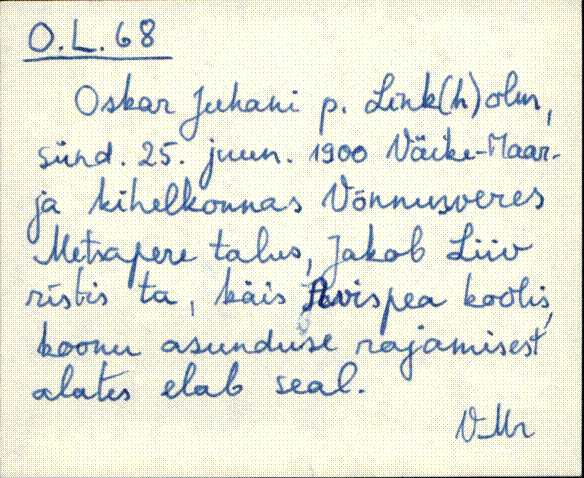 O.L.68
Oskar Juhani p. Link(h)olm,
sünd. 25. juun. 1900 Väike-Maar-
ja kihelkonnas Võnnusveres
Metsapere talus, Jakob Liiv
ristis ta, käis Avispea koolis,
koonu asunduse rajamisest
alates elab seal.
V.Mr